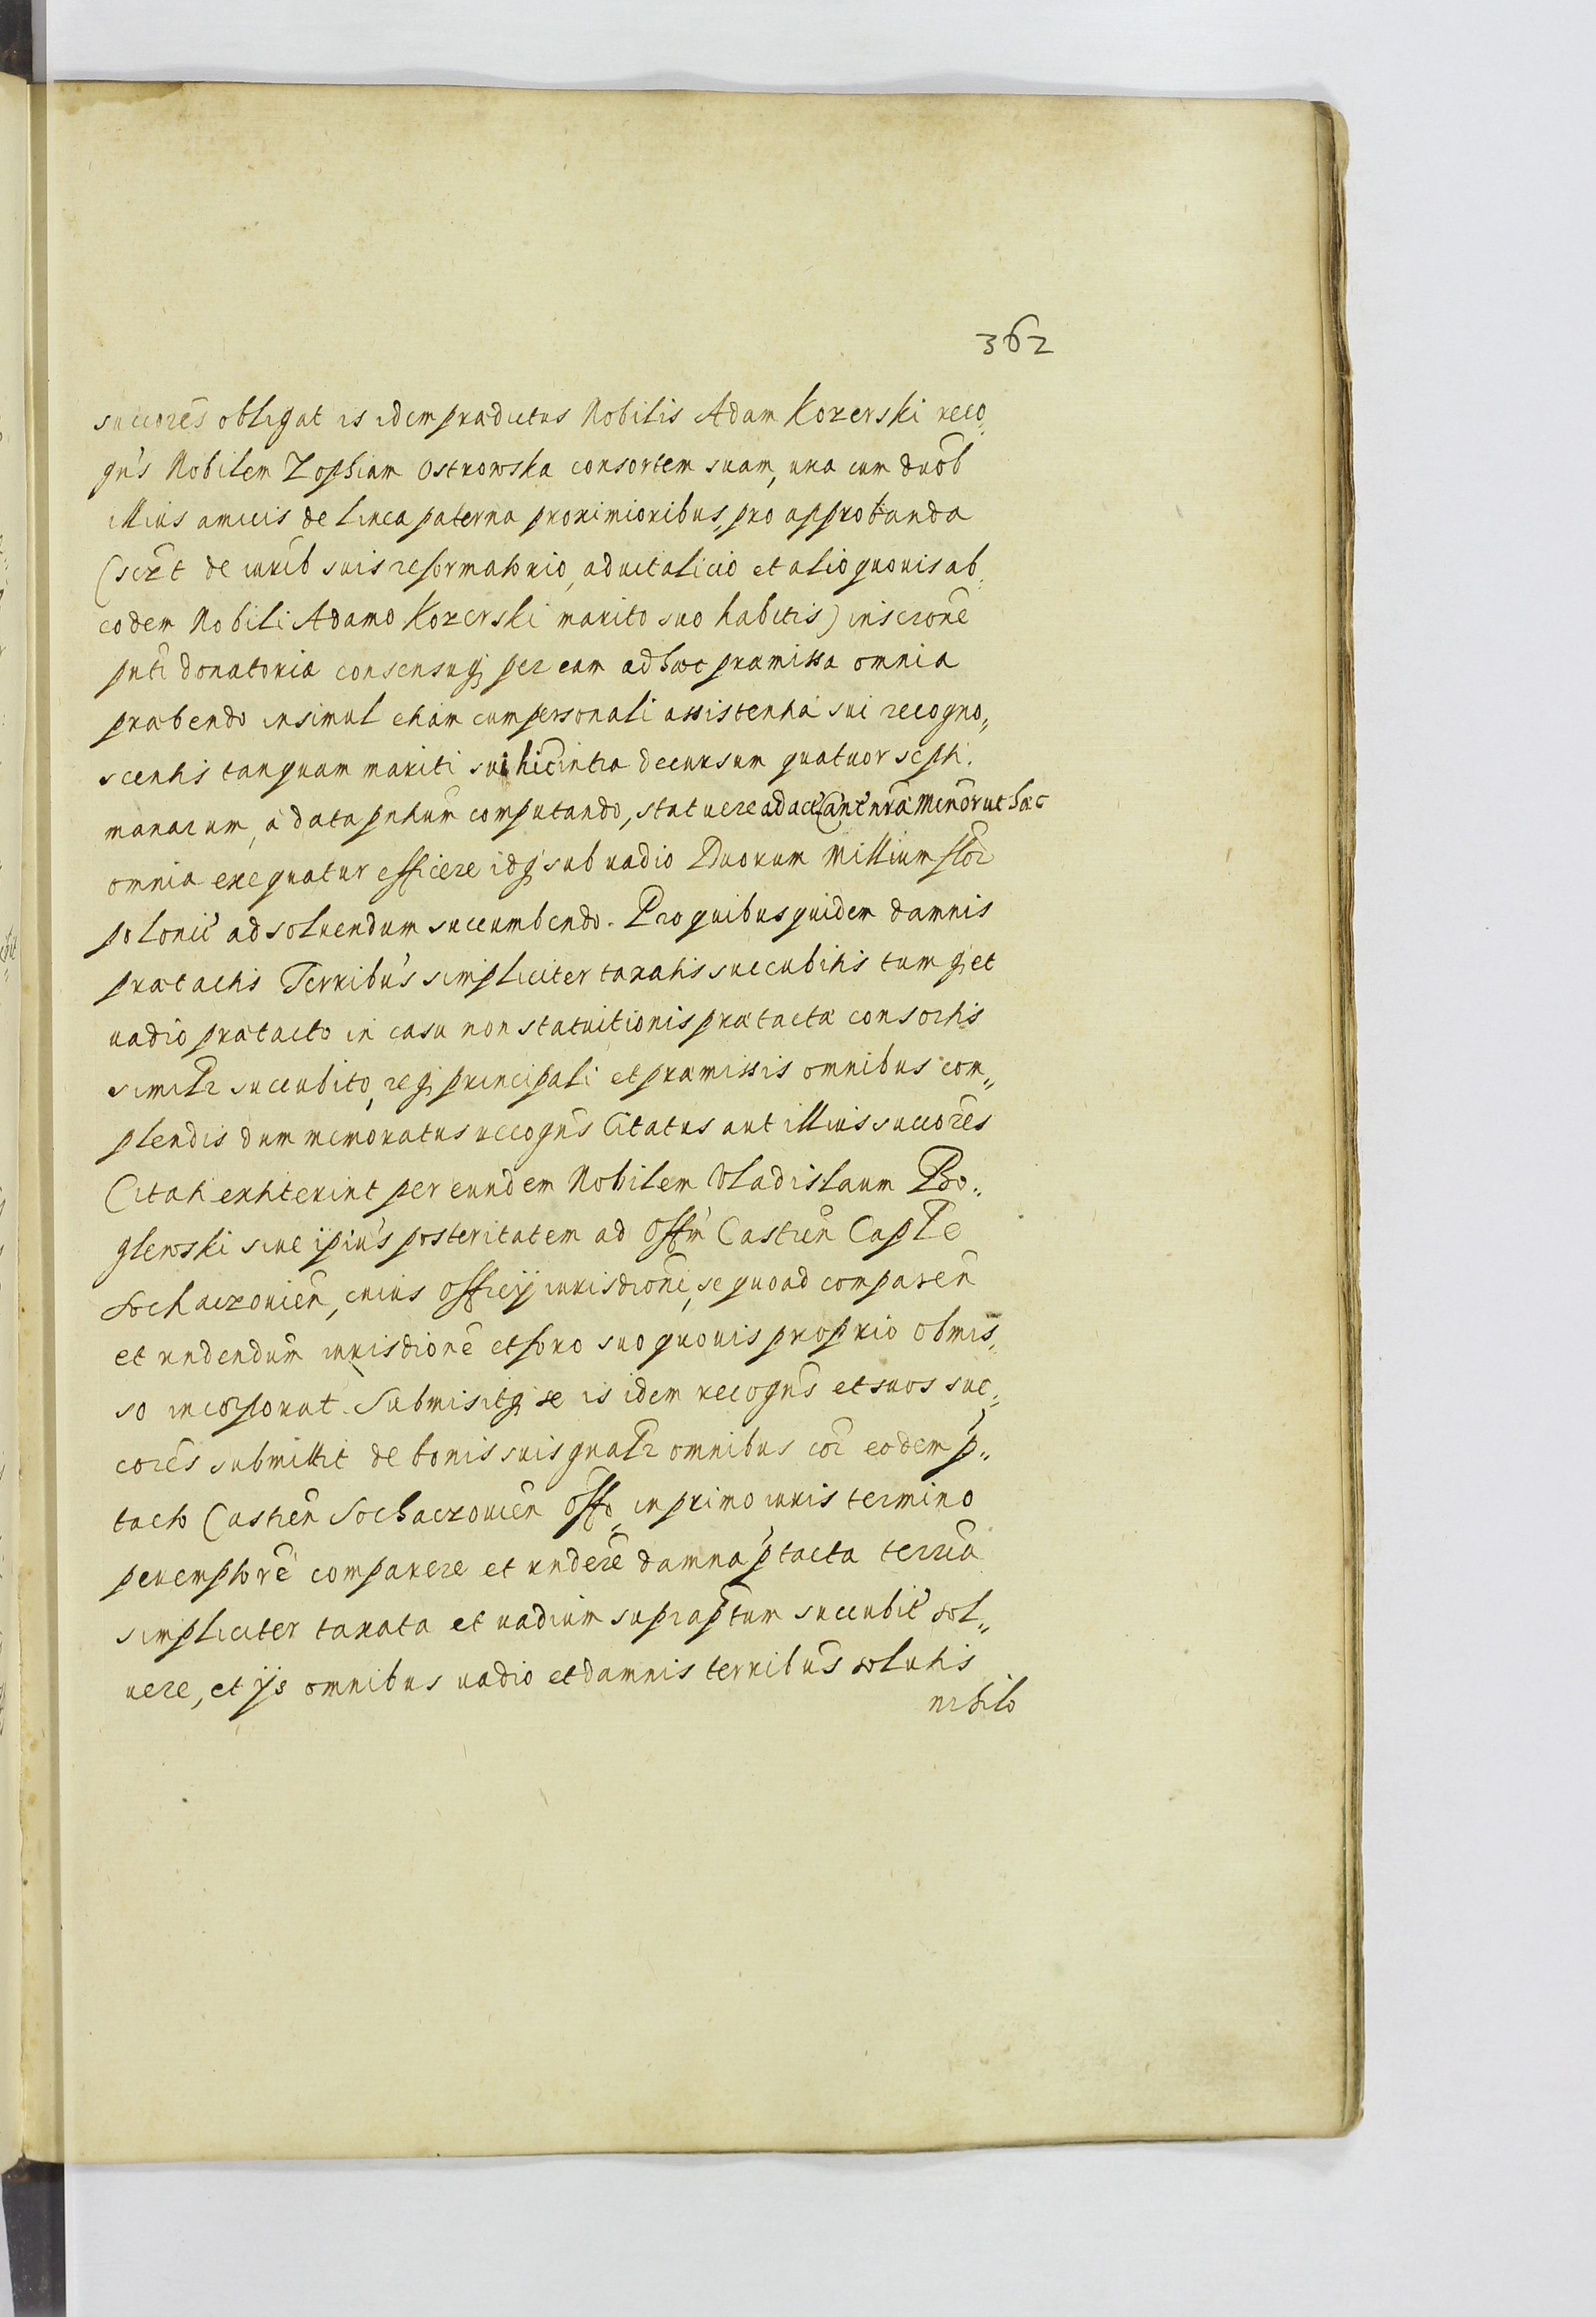 362
succorēs obligat is idem prædictus Nobilis Adam Kozerski reco„
gn̄s Nobilem Zophiam Ostrowska consortem suam, una cum duōb
illius amicis de linea paterna proximioribus, pro approbanda
(scīt de iurib suis reformatorio, aduitalicio et alio quouis ab
eodem Nobili Adamo Kozerski marito suo habitis) inscrōne
pn̄ti donatoria consensuq; per eam ad hæc præmissa omnia
præbendo insimul etiam cum personali assistentia sui recogno„
scentis tanquam mariti sui hic intra decursum quatuor septi„
manarum, a data pn̄tium computando, statuere ad act Canc nr̄a Minor ut hæc
omnia exequatur efficere idq; sub vadio Duorum Millium flor̄
polonic̄ ad soluendum succumbendo. Pro quibus quidem damnis
prætactis Terribus simpliciter taxatis succubitis tumq; et
vadio prætacto in casu non statuitionis prætactæ consortis
similr̄ succubito, req; principali et præmissis omnibus com„
plendis dum memoratus recogn̄s Citatus aut illius succorēs
Citati extiterint per eundem Nobilem Vladislaum Bo„
glewski siue ipius posteritatem ad Offm̄ Castren̄ Caplē
Sochaczouien̄, cuius Officij iurisdiōni, se quoad comparen̄
et rn̄dendum iurisdiōne et foro suo quouis proprio obmis„
so incorporat. Submisitq; se is idem recogn̄s et suos suc„
corēs submittit de bonis suis gnalr̄ omnibus cor̄ eodem p„
tacto Castren̄ Sochaczouien̄ Offo, in primo iuris termino
peremptorē comparere et rn̄dere damna ptacta terrīa
simpliciter taxata et vadium supraptum succubit̄ sol„
uere, et ijs omnibus vadio et damnis terribus solutis
nihilo